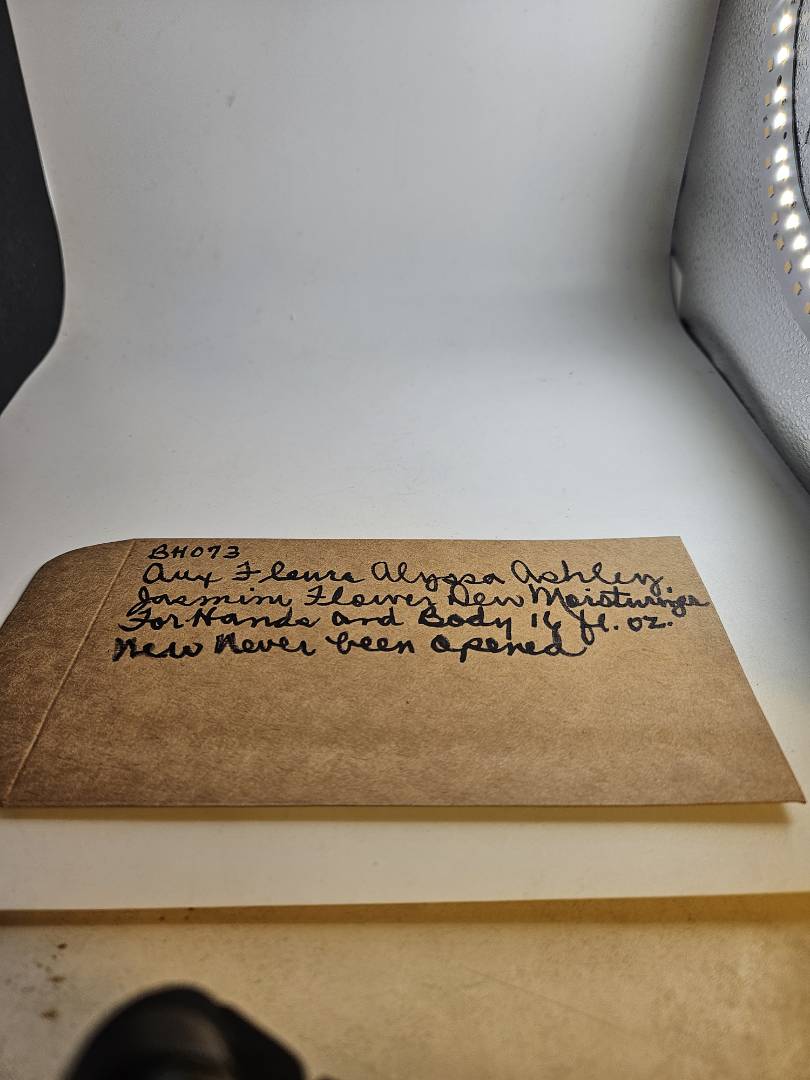 BH073
Aux Fleurs Alyssa Ashley
Jasmin Flower Dew Moisturizer
For Hands and Body 16 fl. oz.
New Never been opened